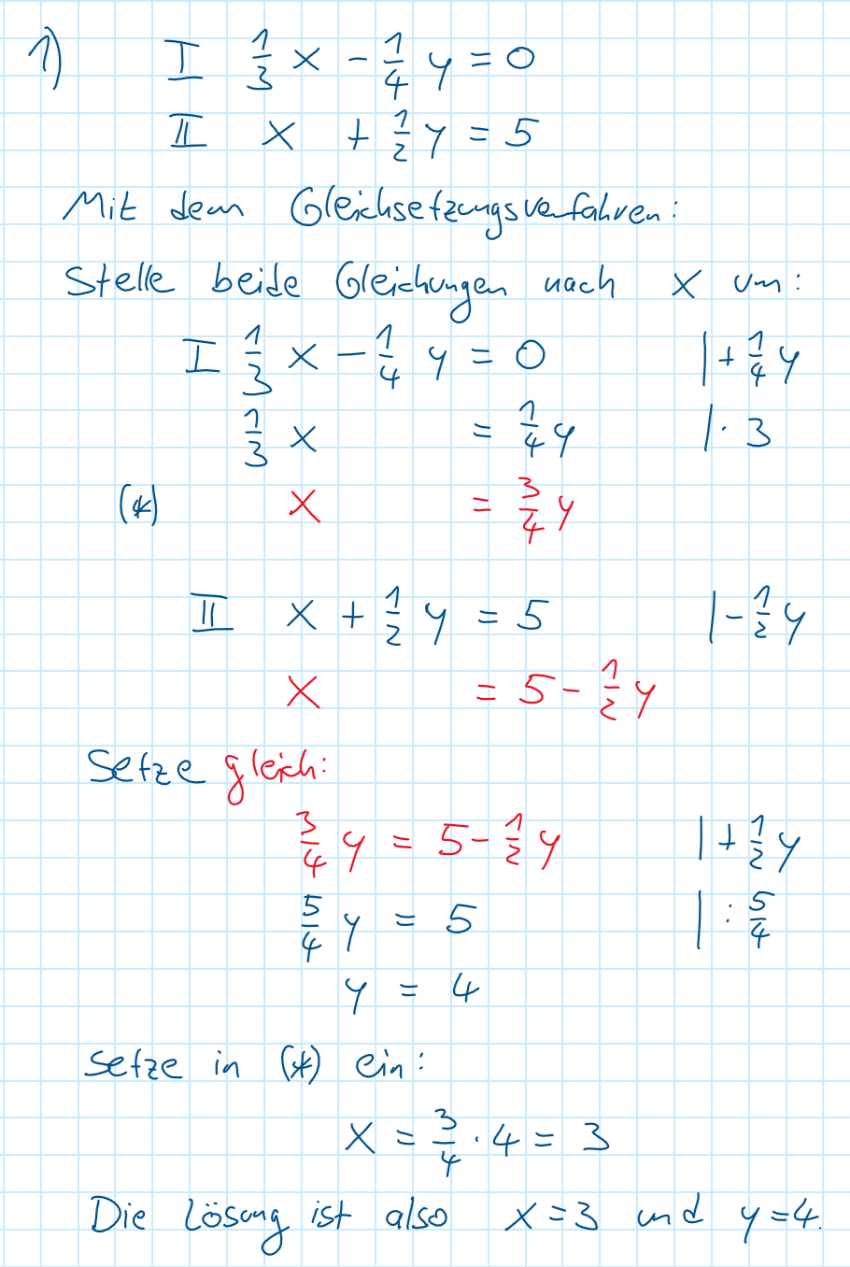 1) I 1/3 x - 1/4 y = 0
II x + 1/2 y = 5
Mit dem Gleichsetzungsverfahren:
Stelle beide Gleichungen nach x um:
I 1/3 x - 1/4 y = 0 | + 1/4 y
1/3 x = 1/4 y | · 3
(*) x = 3/4 y
II x + 1/2 y = 5 | - 1/2 y
x = 5 - 1/2 y
Setze gleich:
3/4 y = 5 - 1/2 y | + 1/2 y
5/4 y = 5 | : 5/4
y = 4
Setze in (*) ein:
x = 3/4 · 4 = 3
Die Lösung ist also x = 3 und y = 4.